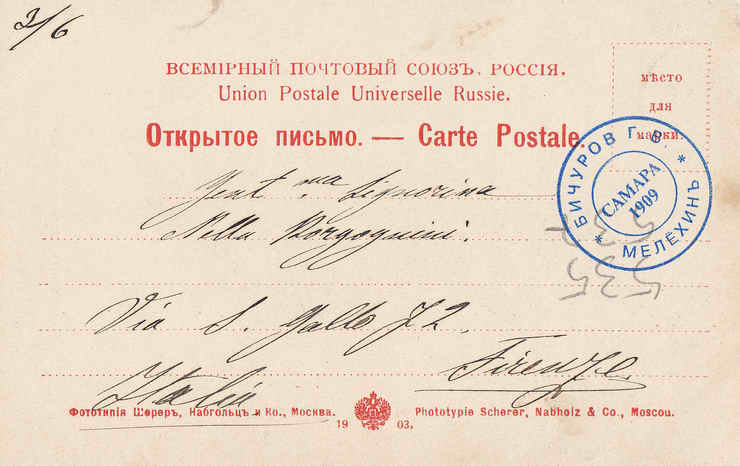 3/6
ВСЕМІРНЫЙ ПОЧТОВЫЙ СОЮЗЪ. РОССІЯ.
Union Postale Universelle Russie.
мѣсто
для
марки.
Открытое письмо. — Carte Postale.
БИЧУРОВ Г. В. * МЕЛЁХИНЪ *
САМАРА
1909
Gent.ma Signorina
Nella Borgognini.
535
Via S. Gallo 72.
Firenze.
Italia
Фототипія Шереръ, Набгольцъ и Ко., Москва.
1903.
Phototypie Scherer, Nabholz & Co., Moscou.